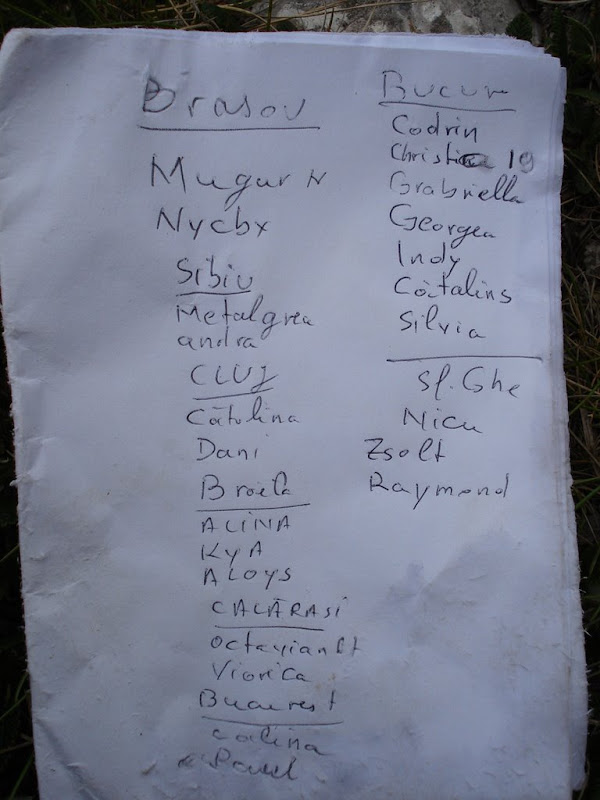 Brasov
Mugur N
Nycbx
Sibiu
Metalgrea
andra
CLUJ
Cătălina
Dani
Braila
ALINA
KYA
ALOYS
CALĂRASI
Octavian Lt
Viorica
Bucurest
Calina
Pavel
Bucur
Codrin
Christina 19
Grabriella
Georgea
Indy
Cătalins
Silvia
Sf. Ghe
Nicu
Zsolt
Raymond